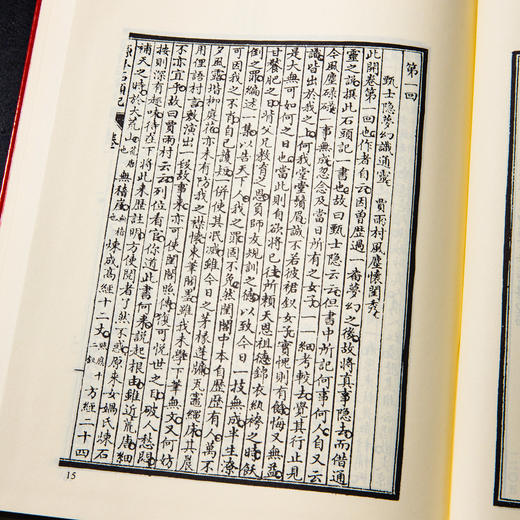 第一回
甄士隱夢幻識通靈　賈雨村風塵懷閨秀
此開卷第一回也作者自云因曾歷過一番夢幻之後故將真事隱去而借通
靈之說撰此石頭記一書也故曰甄士隱云云但書中所記何事何人自又云
今風塵碌碌一事無成忽念及當日所有之女子一一細考較去覺其行止見
識皆出於我之上何我堂堂鬚眉誠不若彼裙釵女子實愧則有餘悔又無益
是大無可如何之日也當此則自欲將已往所賴天恩祖德錦衣紈袴之時飫
甘饜肥之日背父兄教育之恩負師友規訓之德以致今日一技無成半生潦
倒之罪編述一集以告天下人我之罪固不免然閨閣中本自歷歷有人萬不
可因我之不肖自己護短一併使其泯滅雖今日之茅椽蓬牖瓦竈繩床其晨
夕風露階柳庭花亦未有妨我之襟懷束筆閣墨雖我未學下筆無文又何妨
用俚語村言敷演出一段故事來亦可使閨閣昭傳復可悅世之目破人愁悶
不亦宜乎故曰賈雨村云云列位看官你道此書何來說起根由雖近荒唐細
按則深有趣味待在下將此來歷註明方使閱者了然不惑原來女媧氏煉石
補天之時於大荒山荒唐也無稽崖無稽也煉成高經十二丈總應十二釵方經二十四
石頭記
卷一
15